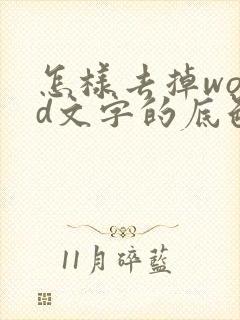 怎样去掉wo
d文字的底
11月碎藍